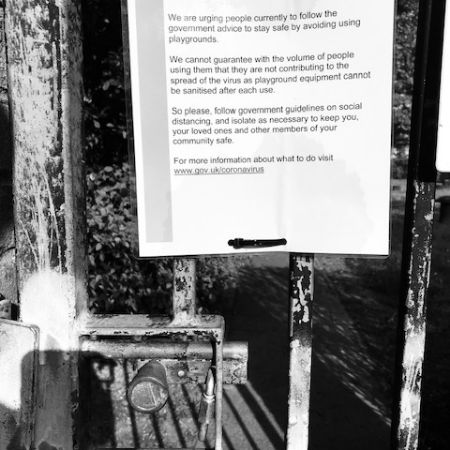 We are urging people currently to follow the
government advice to stay safe by avoiding using
playgrounds.
We cannot guarantee with the volume of people
using them that they are not contributing to the
spread of the virus as playground equipment cannot
be sanitised after each use.
So please, follow government guidelines on social
distancing, and isolate as necessary to keep you,
your loved ones and other members of your
community safe.
For more information about what to do visit
www.gov.uk/coronavirus